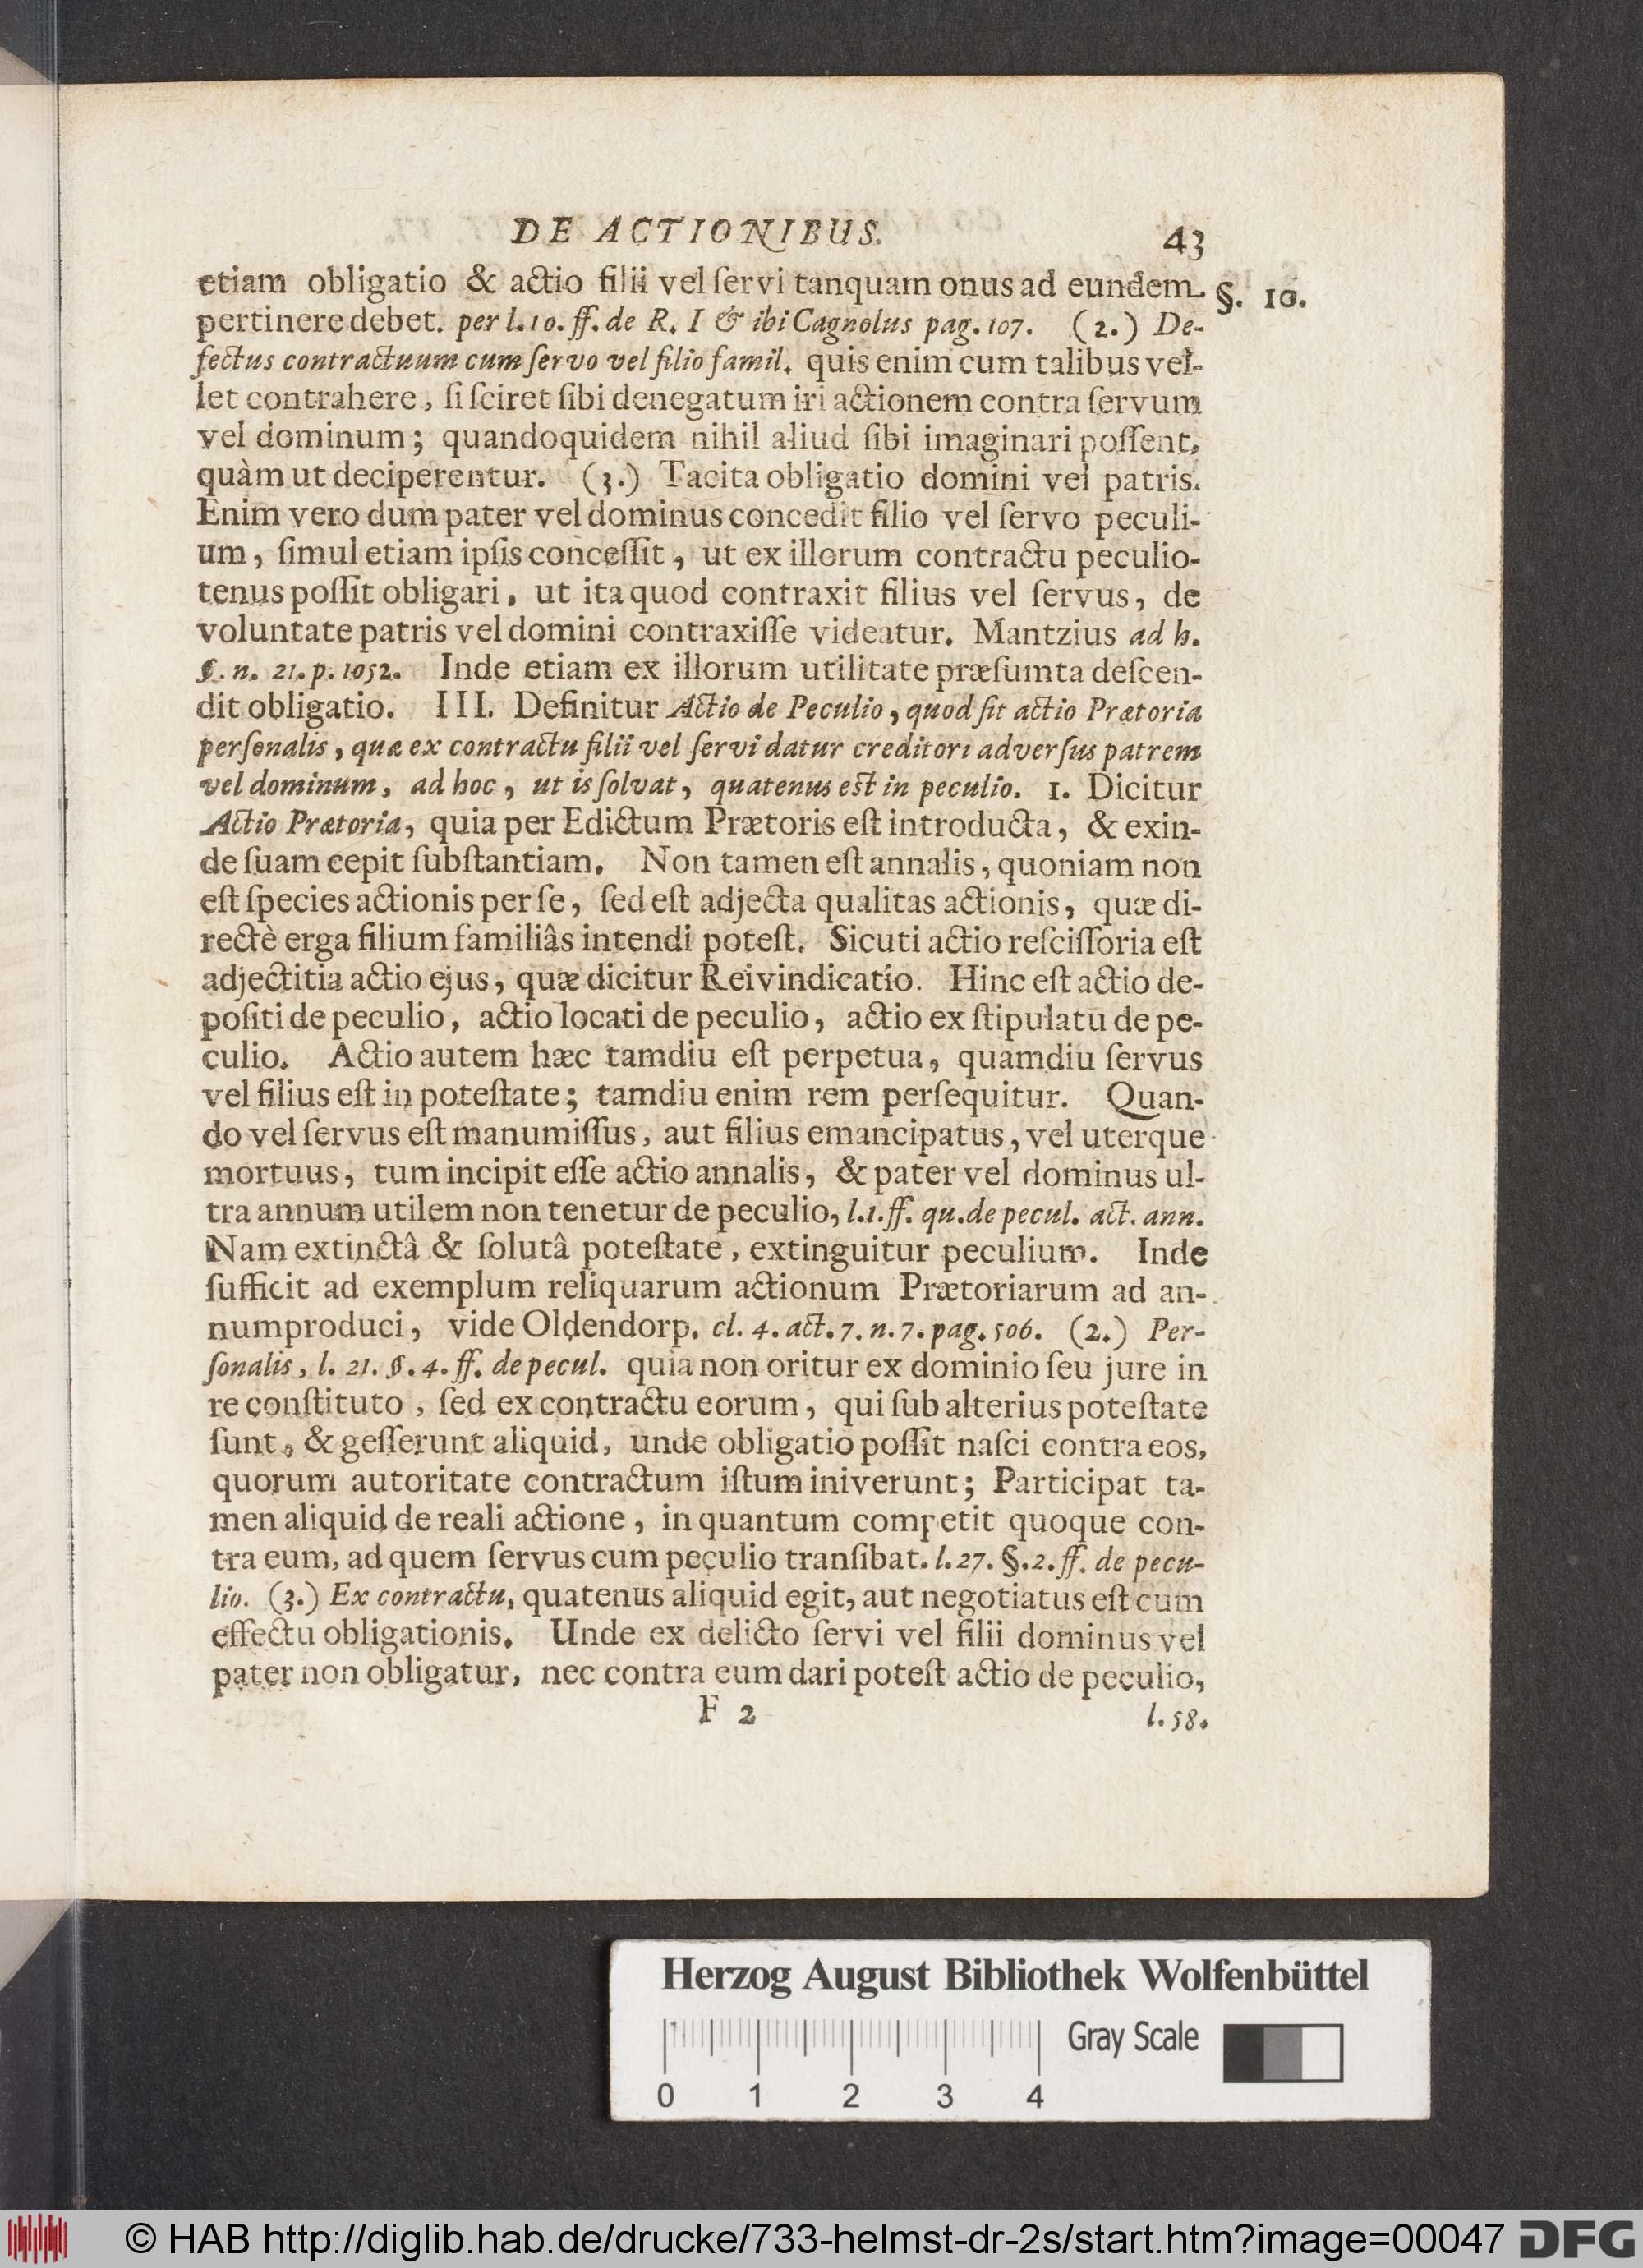 DE ACTIONIBUS. 43
etiam obligatio & actio filii vel ſervi tanquam onus ad eundem §. 10.
pertinere debet. per l. 10. ff. de R. I & ibi Cagnolus pag. 107. (2.) De-
fectus contractuum cum ſervo vel filio famil. quis enim cum talibus vel-
let contrahere, ſi ſciret ſibi denegatum iri actionem contra ſervum
vel dominum; quandoquidem nihil aliud ſibi imaginari poſſent,
quàm ut deciperentur. (3.) Tacita obligatio domini vel patris.
Enim vero dum pater vel dominus concedit filio vel ſervo peculi-
um, ſimul etiam ipſis conceſſit, ut ex illorum contractu peculio-
tenus poſſit obligari, ut ita quod contraxit filius vel ſervus, de
voluntate patris vel domini contraxiſſe videatur. Mantzius ad h.
§. n. 21. p. 1052. Inde etiam ex illorum utilitate præſumta deſcen-
dit obligatio. III. Definitur Actio de Peculio, quod ſit actio Prætoria
perſonalis, quæ ex contractu filii vel ſervi datur creditori adverſus patrem
vel dominum, ad hoc, ut is ſolvat, quatenus eſt in peculio. 1. Dicitur
Actio Prætoria, quia per Edictum Prætoris eſt introducta, & exin-
de ſuam cepit ſubſtantiam. Non tamen eſt annalis, quoniam non
eſt ſpecies actionis per ſe, ſed eſt adjecta qualitas actionis, quæ di-
rectè erga filium familiâs intendi poteſt. Sicuti actio reſciſſoria eſt
adjectitia actio ejus, quæ dicitur Reivindicatio. Hinc eſt actio de-
poſiti de peculio, actio locati de peculio, actio ex ſtipulatu de pe-
culio. Actio autem hæc tamdiu eſt perpetua, quamdiu ſervus
vel filius eſt in poteſtate; tamdiu enim rem perſequitur. Quan-
do vel ſervus eſt manumiſſus, aut filius emancipatus, vel uterque
mortuus, tum incipit eſſe actio annalis, & pater vel dominus ul-
tra annum utilem non tenetur de peculio, l. 1. ff. qu. de pecul. act. ann.
Nam extinctâ & ſolutâ poteſtate, extinguitur peculium. Inde
ſufficit ad exemplum reliquarum actionum Prætoriarum ad an-
numproduci, vide Oldendorp. cl. 4. act. 7. n. 7. pag. 506. (2.) Per-
ſonalis, l. 21. §. 4. ff. de pecul. quia non oritur ex dominio ſeu jure in
re conſtituto, ſed ex contractu eorum, qui ſub alterius poteſtate
ſunt, & geſſerunt aliquid, unde obligatio poſſit naſci contra eos,
quorum autoritate contractum iſtum iniverunt; Participat ta-
men aliquid de reali actione, in quantum competit quoque con-
tra eum, ad quem ſervus cum peculio tranſibat. l. 27. §. 2. ff. de pecu-
lio. (3.) Ex contractu, quatenus aliquid egit, aut negotiatus eſt cum
effectu obligationis. Unde ex delicto ſervi vel filii dominus vel
pater non obligatur, nec contra eum dari poteſt actio de peculio,
F 2 l. 58.
Herzog August Bibliothek Wolfenbüttel
Gray Scale
0 1 2 3 4
© HAB http://diglib.hab.de/drucke/733-helmst-dr-2s/start.htm?image=00047 DFG